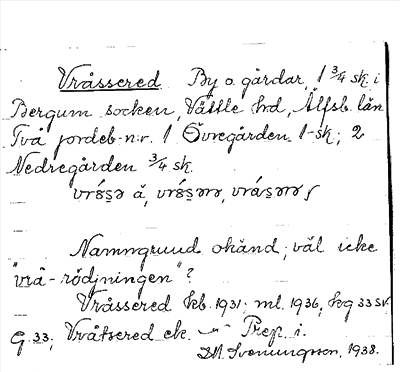 Vråssered By o. gårdar, 1 3/4 sk. i
Bergum socken, Vättle hd, Älfsb. län
Två jordeb-n:r. 1 Övregården 1-sk; 2
Nedregården 3/4 sk.
Namngrund okänd; väl icke
"vrå-rödjningen"?
Vråssered kb. 1931; ml. 1936, kg 33 sv
G. 33; Vråtsered ek. Prep. i.
Svenungsson, 1938.